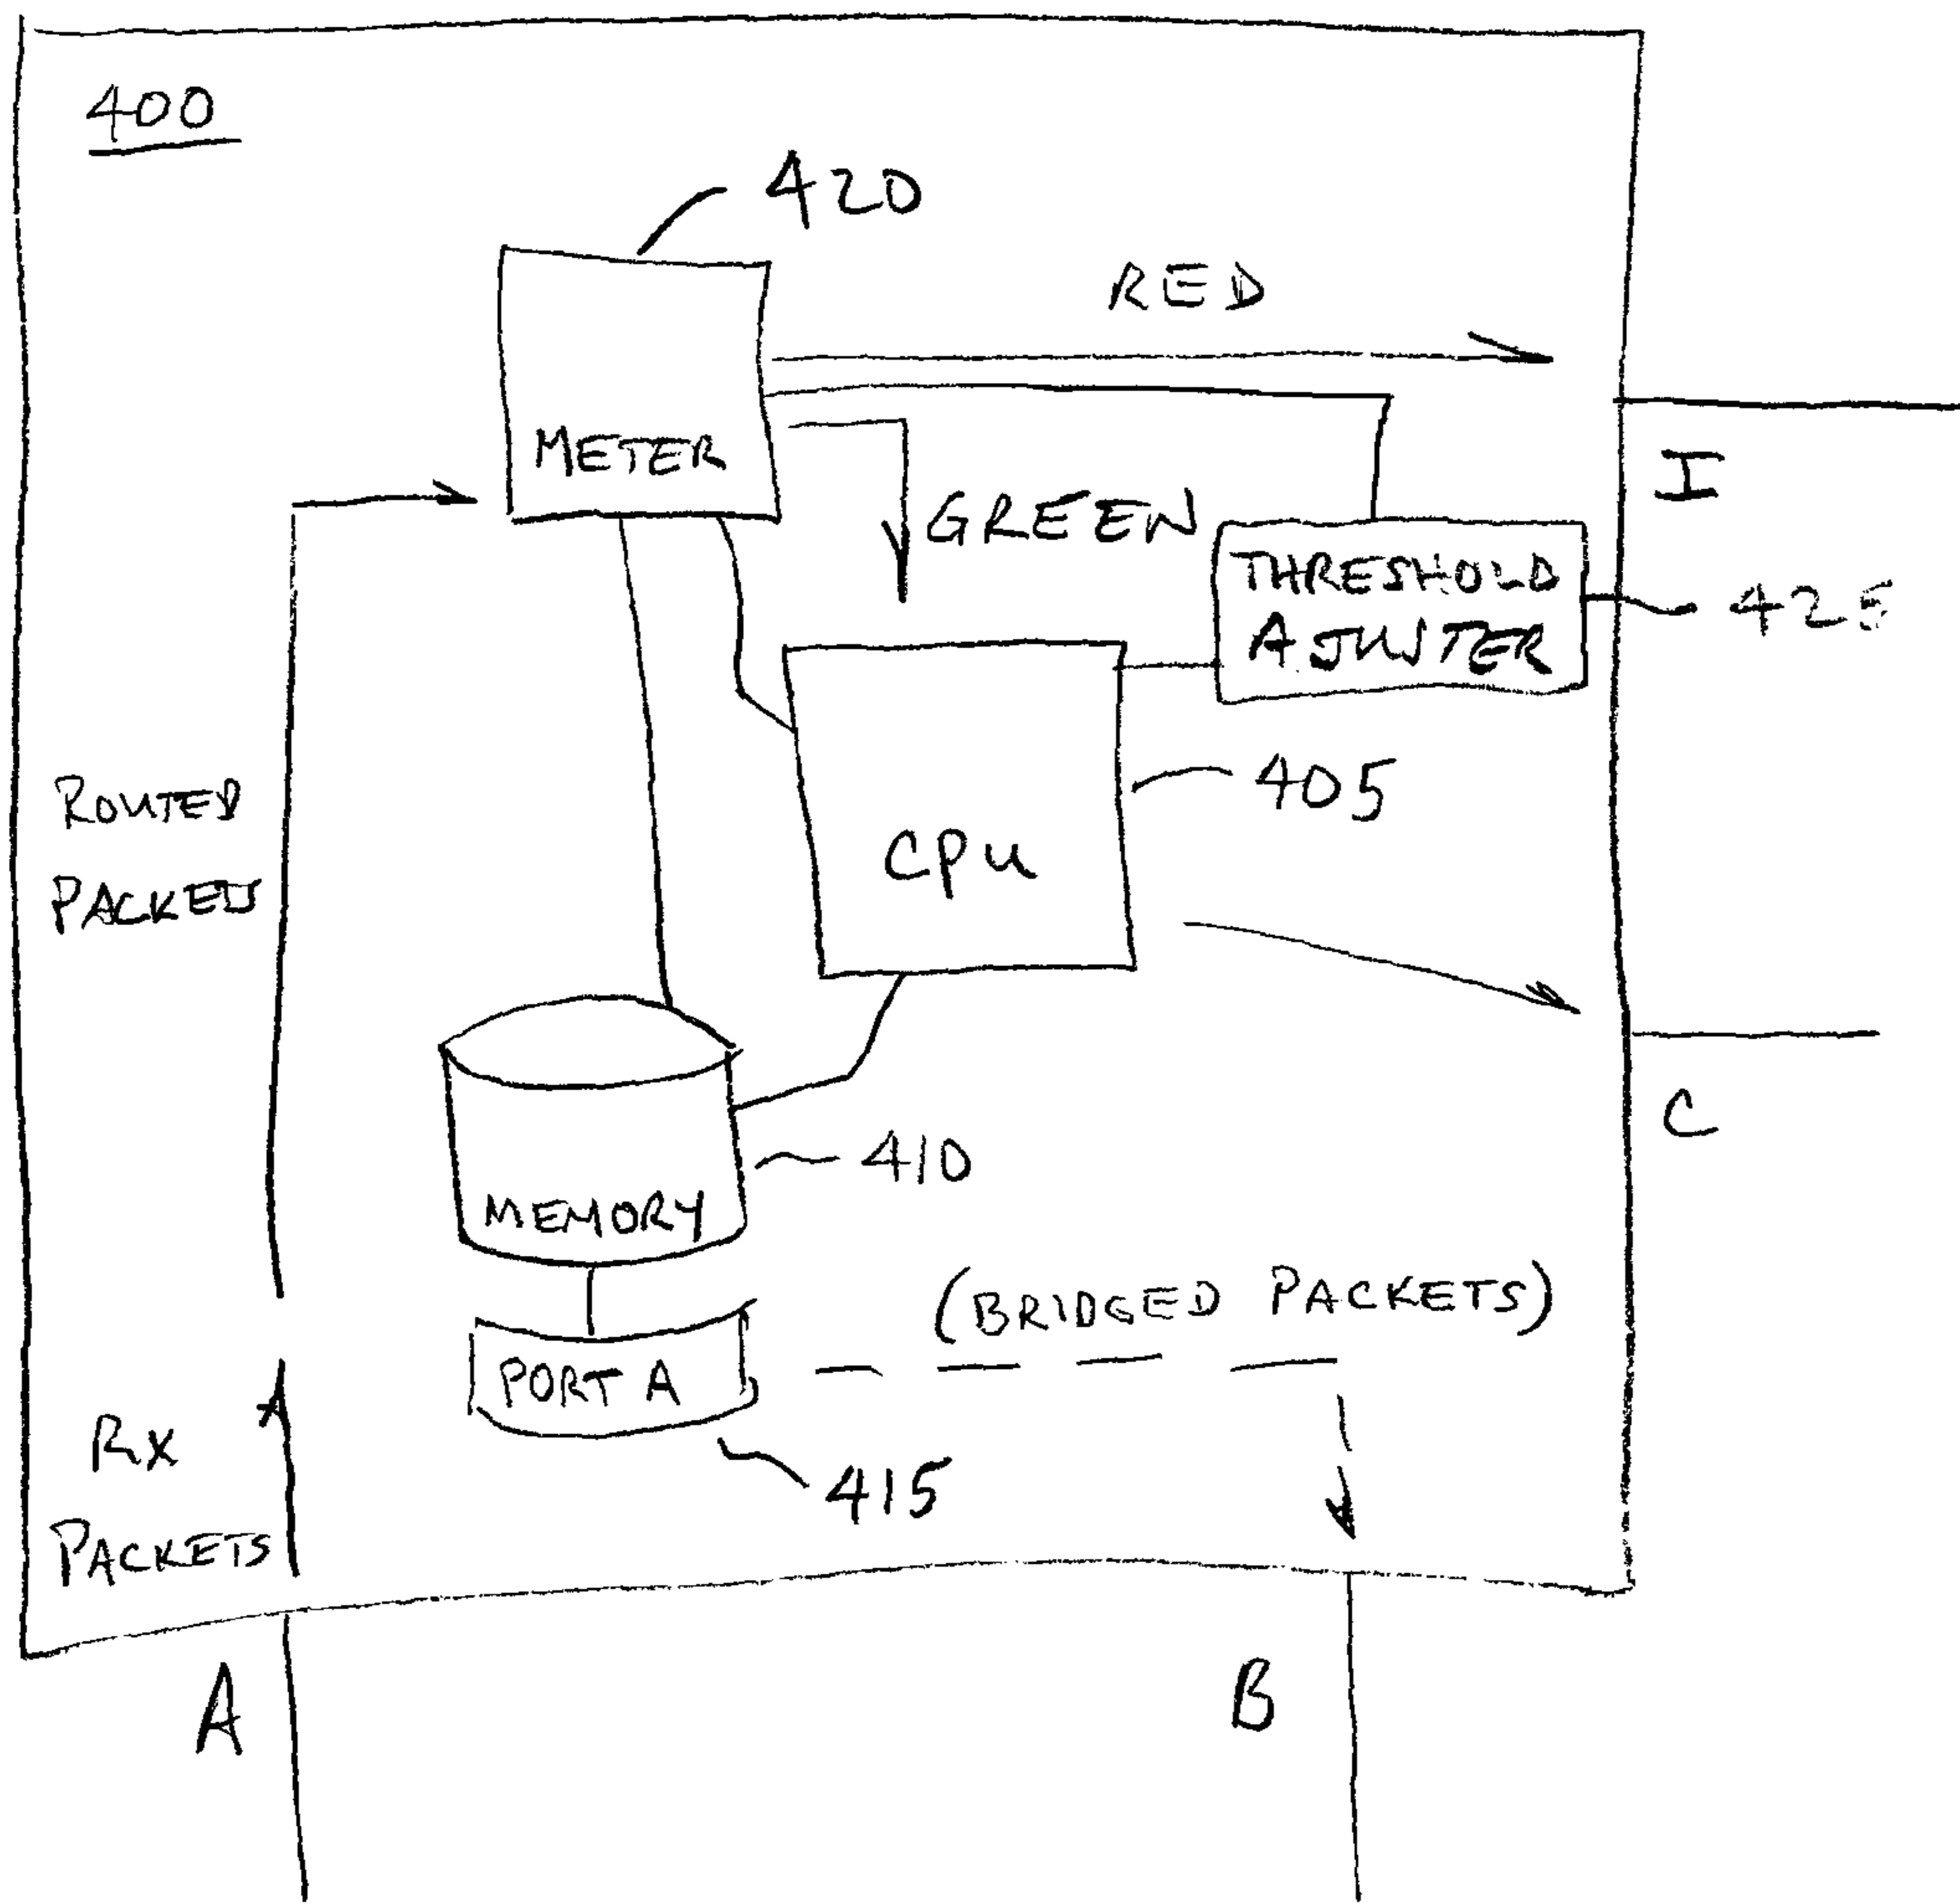 400
420
RED
METER
I
GREEN
THRESHOLD
AJUSTER
425
405
ROUTED
PACKETS
CPU
C
410
MEMORY
(BRIDGED PACKETS)
PORT A
RX
PACKETS
415
A
B